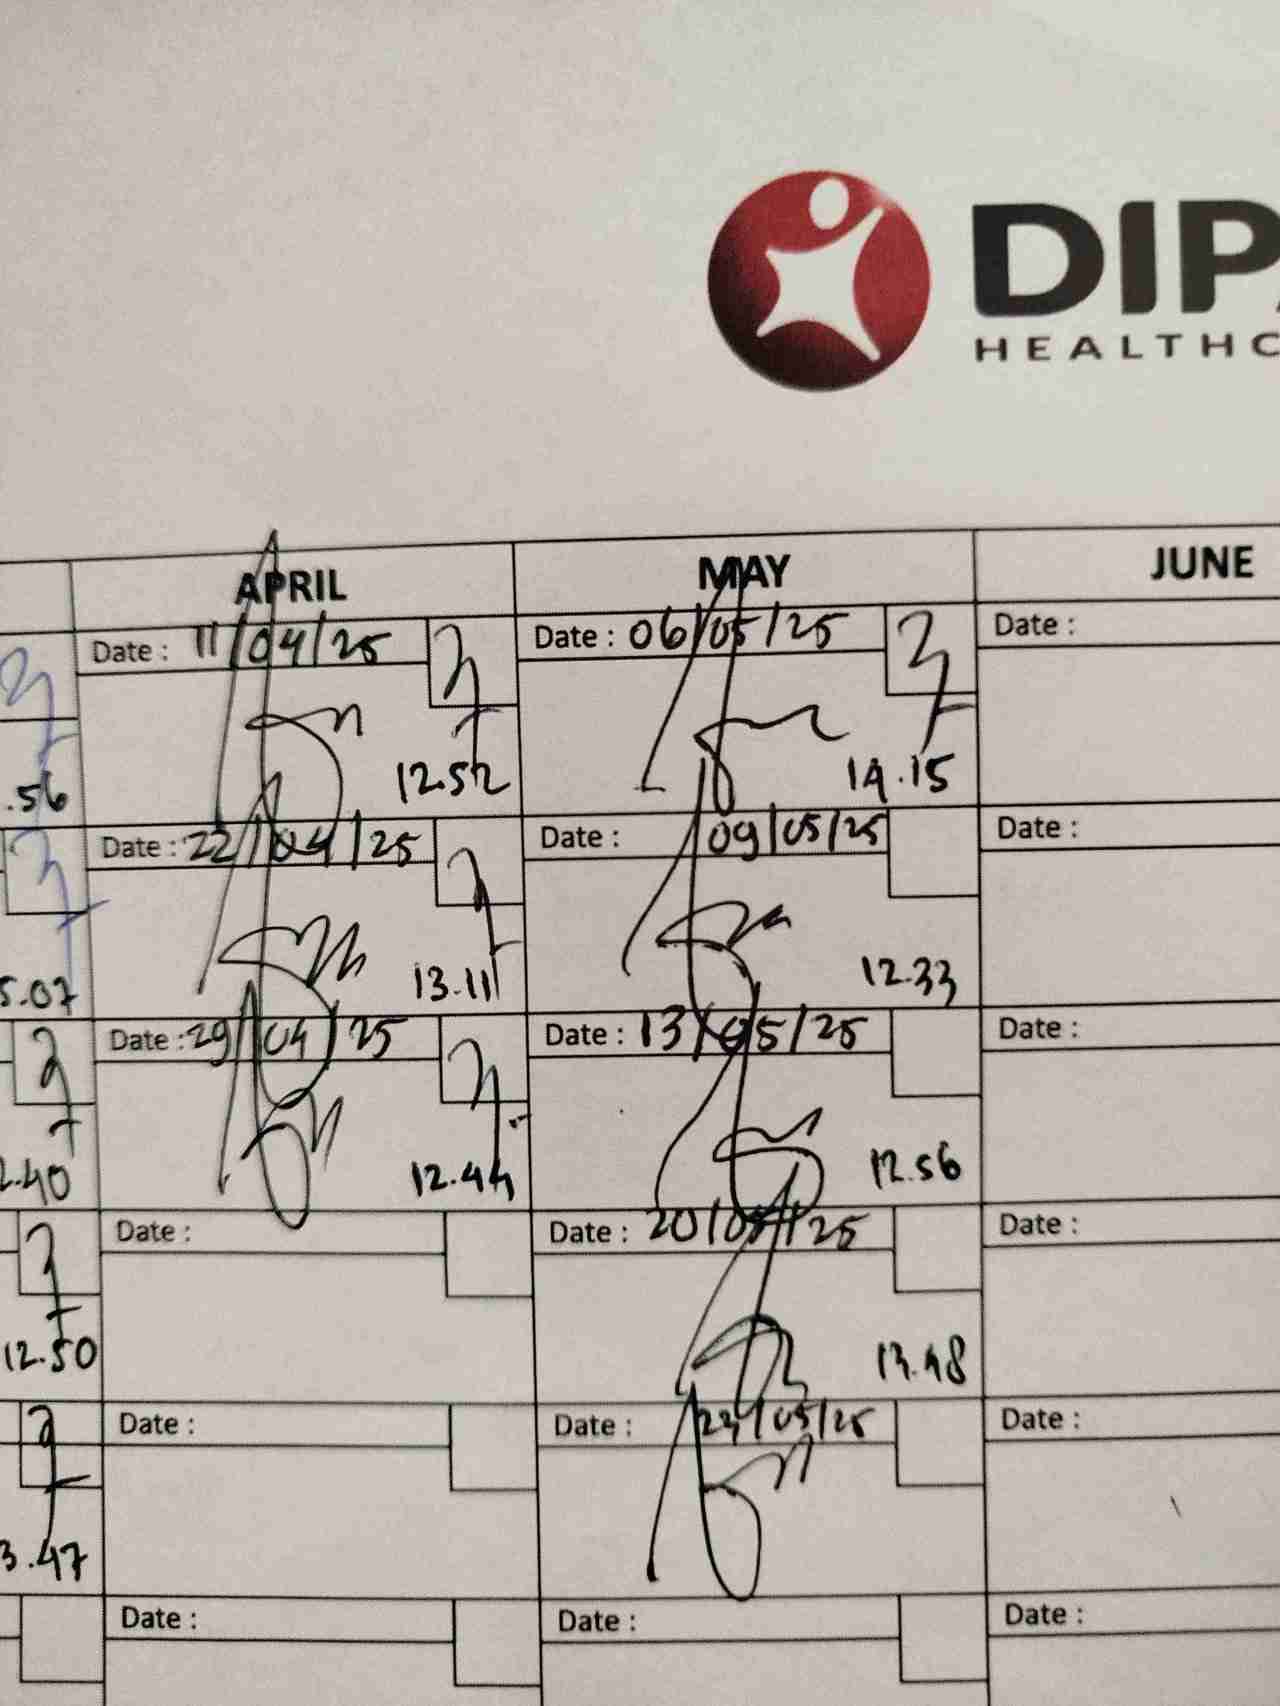 DIP
HEALTHC
APRIL MAY JUNE
Date : 11/04/25 Date : 06/05/25 Date :
.56 12.52 14.15
Date : 22/04/25 Date : 09/05/25 Date :
5.07 13.11 12.33
Date : 29/04/25 Date : 13/05/25 Date :
2.40 12.44 12.56
Date : Date : 20/05/25 Date :
12.50 13.48
Date : Date : 23/05/25 Date :
3.47
Date : Date : Date :